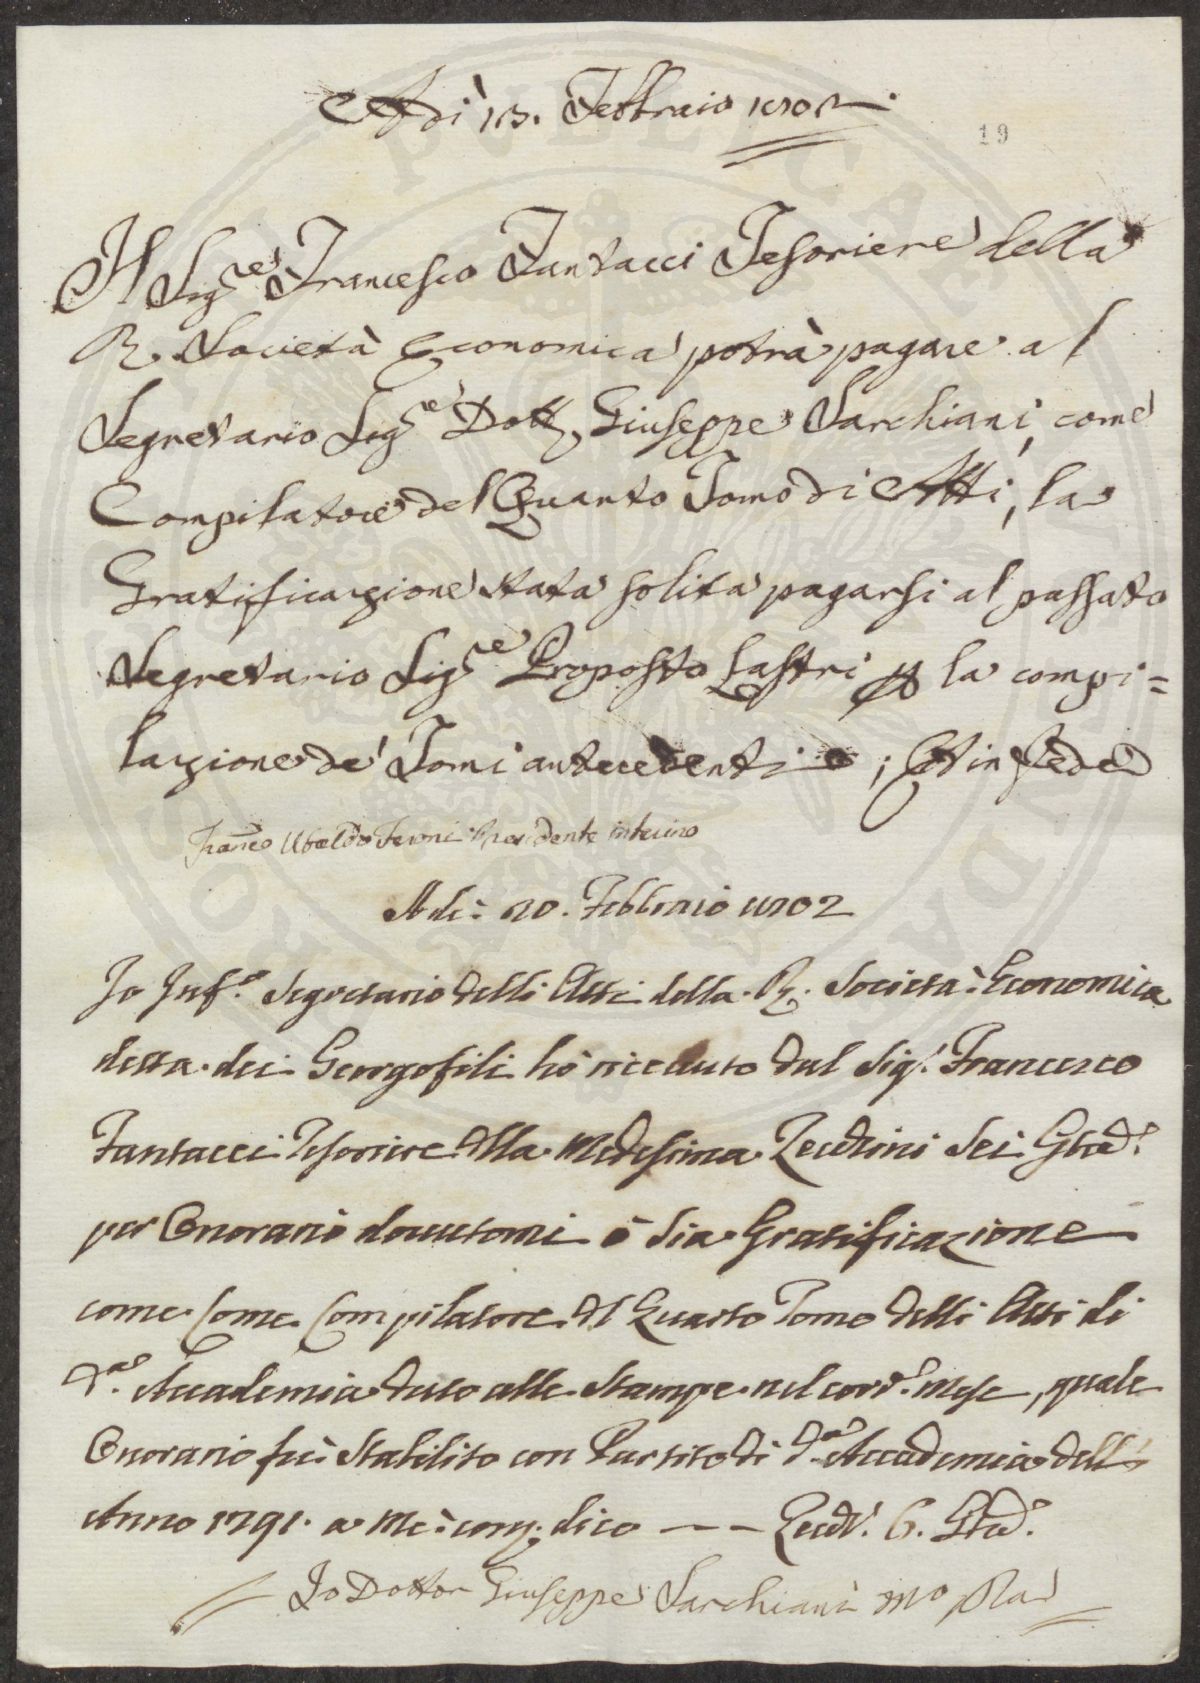 Adì 13. Febbraio 1802
19
Il Sig.re Francesco Fantacci Tesoriere della
R. Società Economica potrà pagare al
Segretario Sig.re Dott. Giuseppe Sarchiani, come
Compilatore del Quarto Tomo di Atti, la
Gratificazione stata solita pagarsi al passato
Segretario Sig.re Proposto Lastri p la compi=
lazione de' Tomi antecedenti; Et in fede
Franco Ubaldo Feroni Presidente interino
Adi: 20. Febbraio 1802
Io Inf.o Segretario delli Atti della R. Società Economica
detta dei Georgofili hò ricevuto dal Sig.r Francesco
Fantacci Tesoriere della Medesima Zecchini Sei Gliati
per Onorario dovutomi ò sia Gratificazione
come Come Compilatore del Quarto Tomo delli Atti di
d.a Accademia dato alle Stampe nel corr.e Mese, quale
Onorario fù Stabilito con Partito di d.a Accademia dell'
Anno 1791. a Me: cont. dico — — Zecch. 6. Gti.
Io Dottor Giuseppe Sarchiani mo ppa